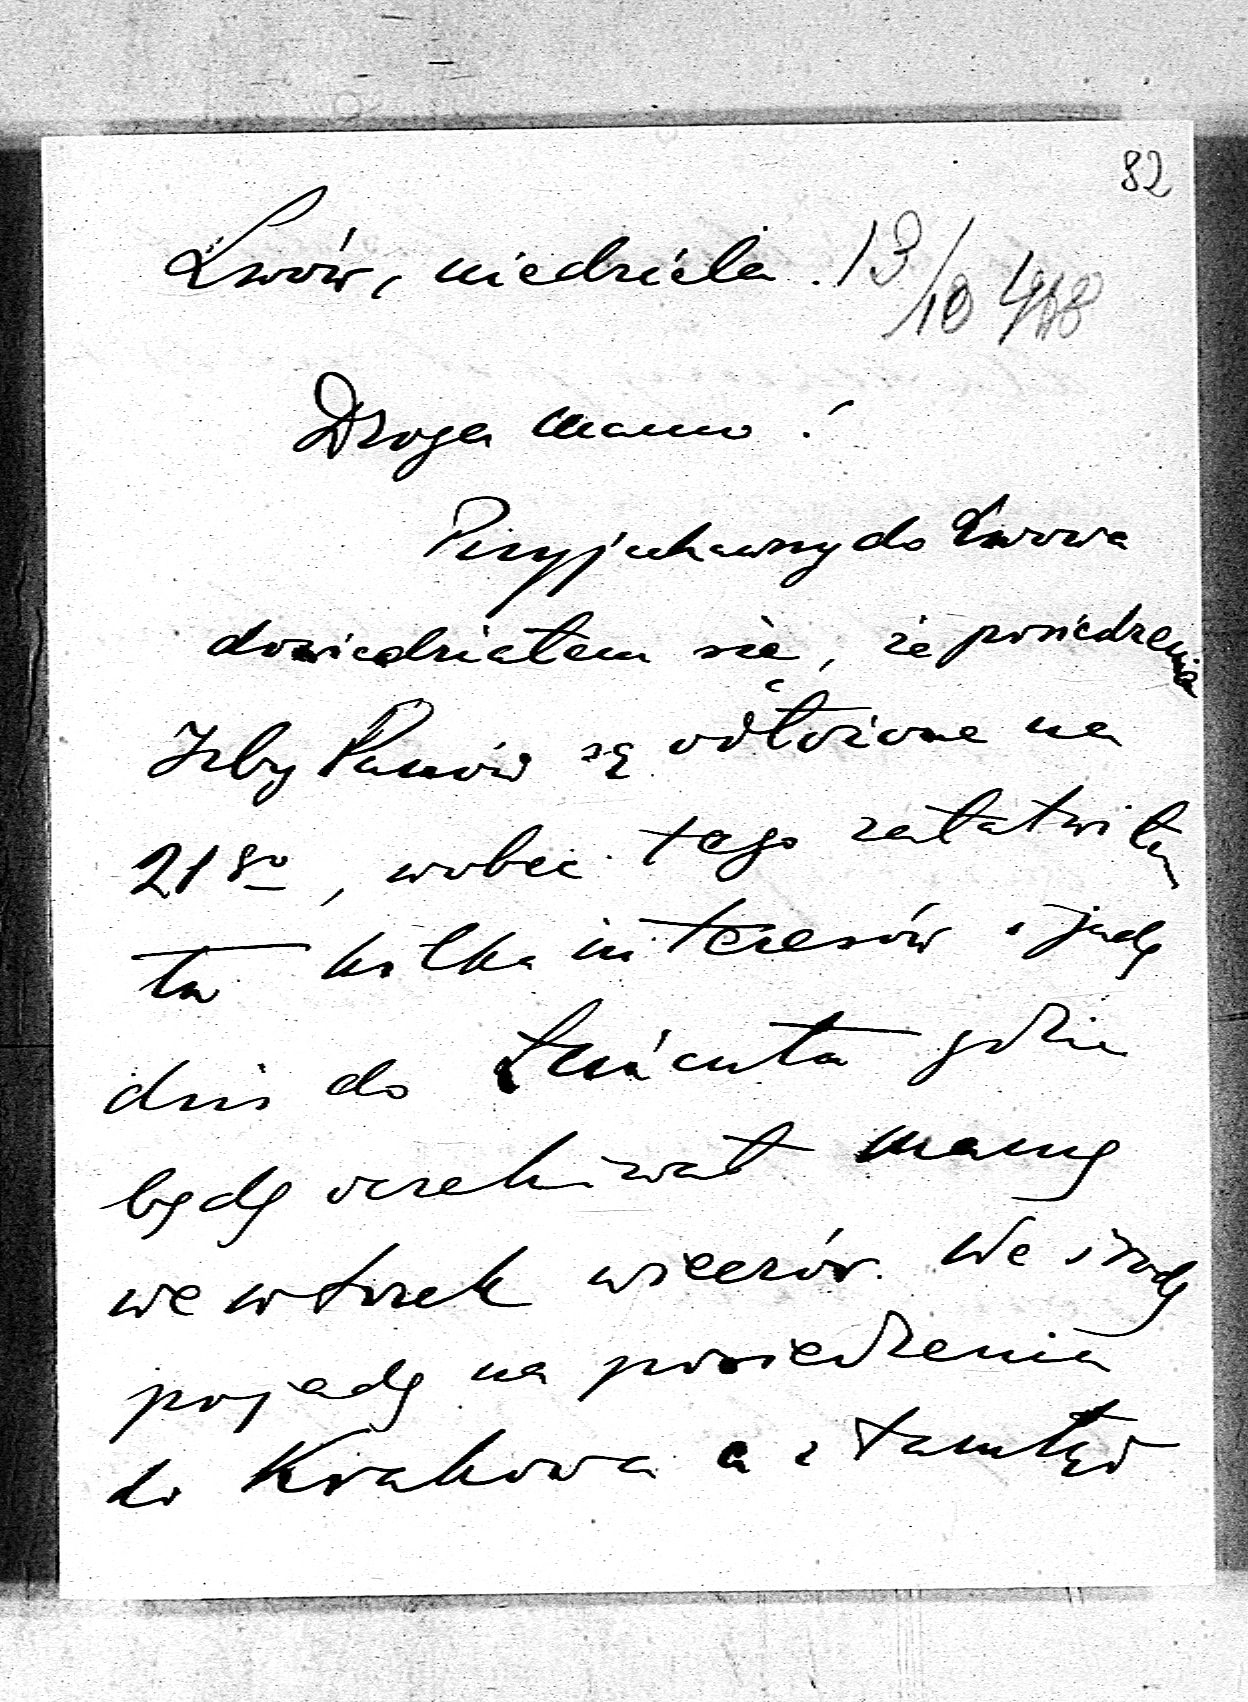 82
Lwów, niedziela. 13/10 918
Droga Mamo!
Przyjechawszy do Lwowa
dowiedziałem się, że posiedzenia
Izby Panów są odłożone na
21go, wobec tego załatwiłem
tu kilka interesów i jadę
dziś do Łańcuta gdzie
będę oczekiwał mamy
we wtorek wieczór. We środę
pojadę na posiedzenia
do Krakowa a z tamtąd